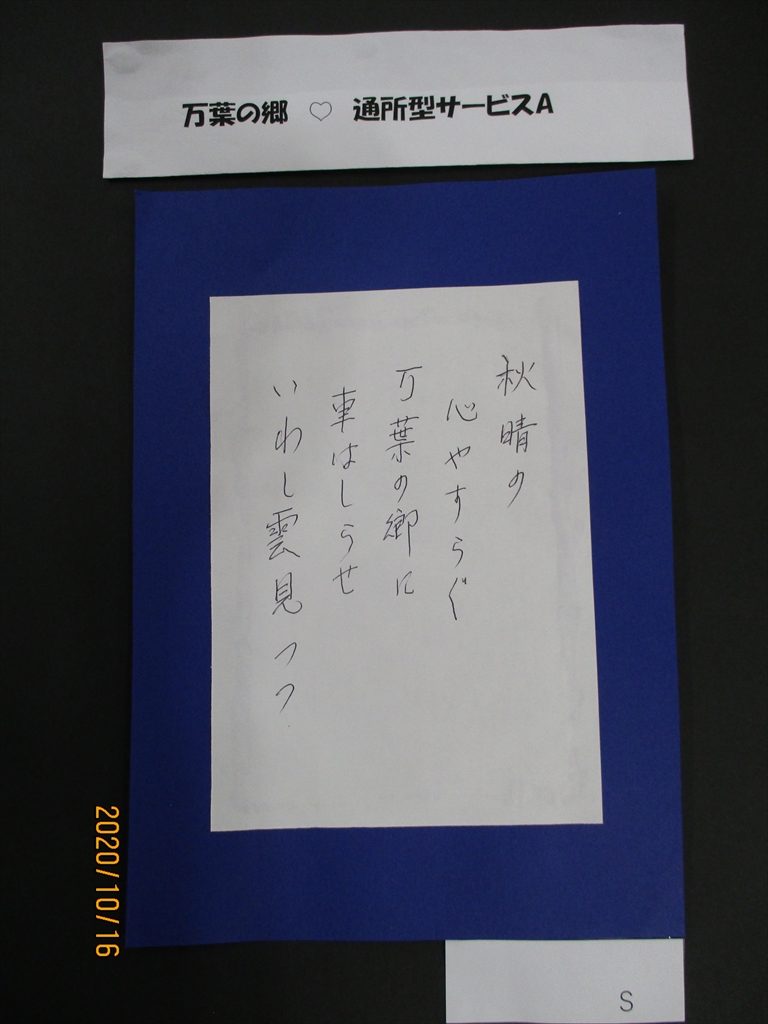 万葉の郷 ♡ 通所型サービスA
秋晴の
心やすらぐ
万葉の郷に
車はしらせ
いわし雲見つつ
2020/10/16
S